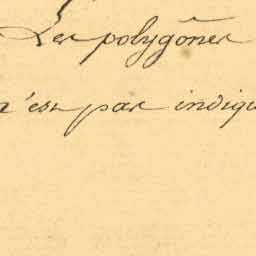 Les polygones
n'est pas indiqu